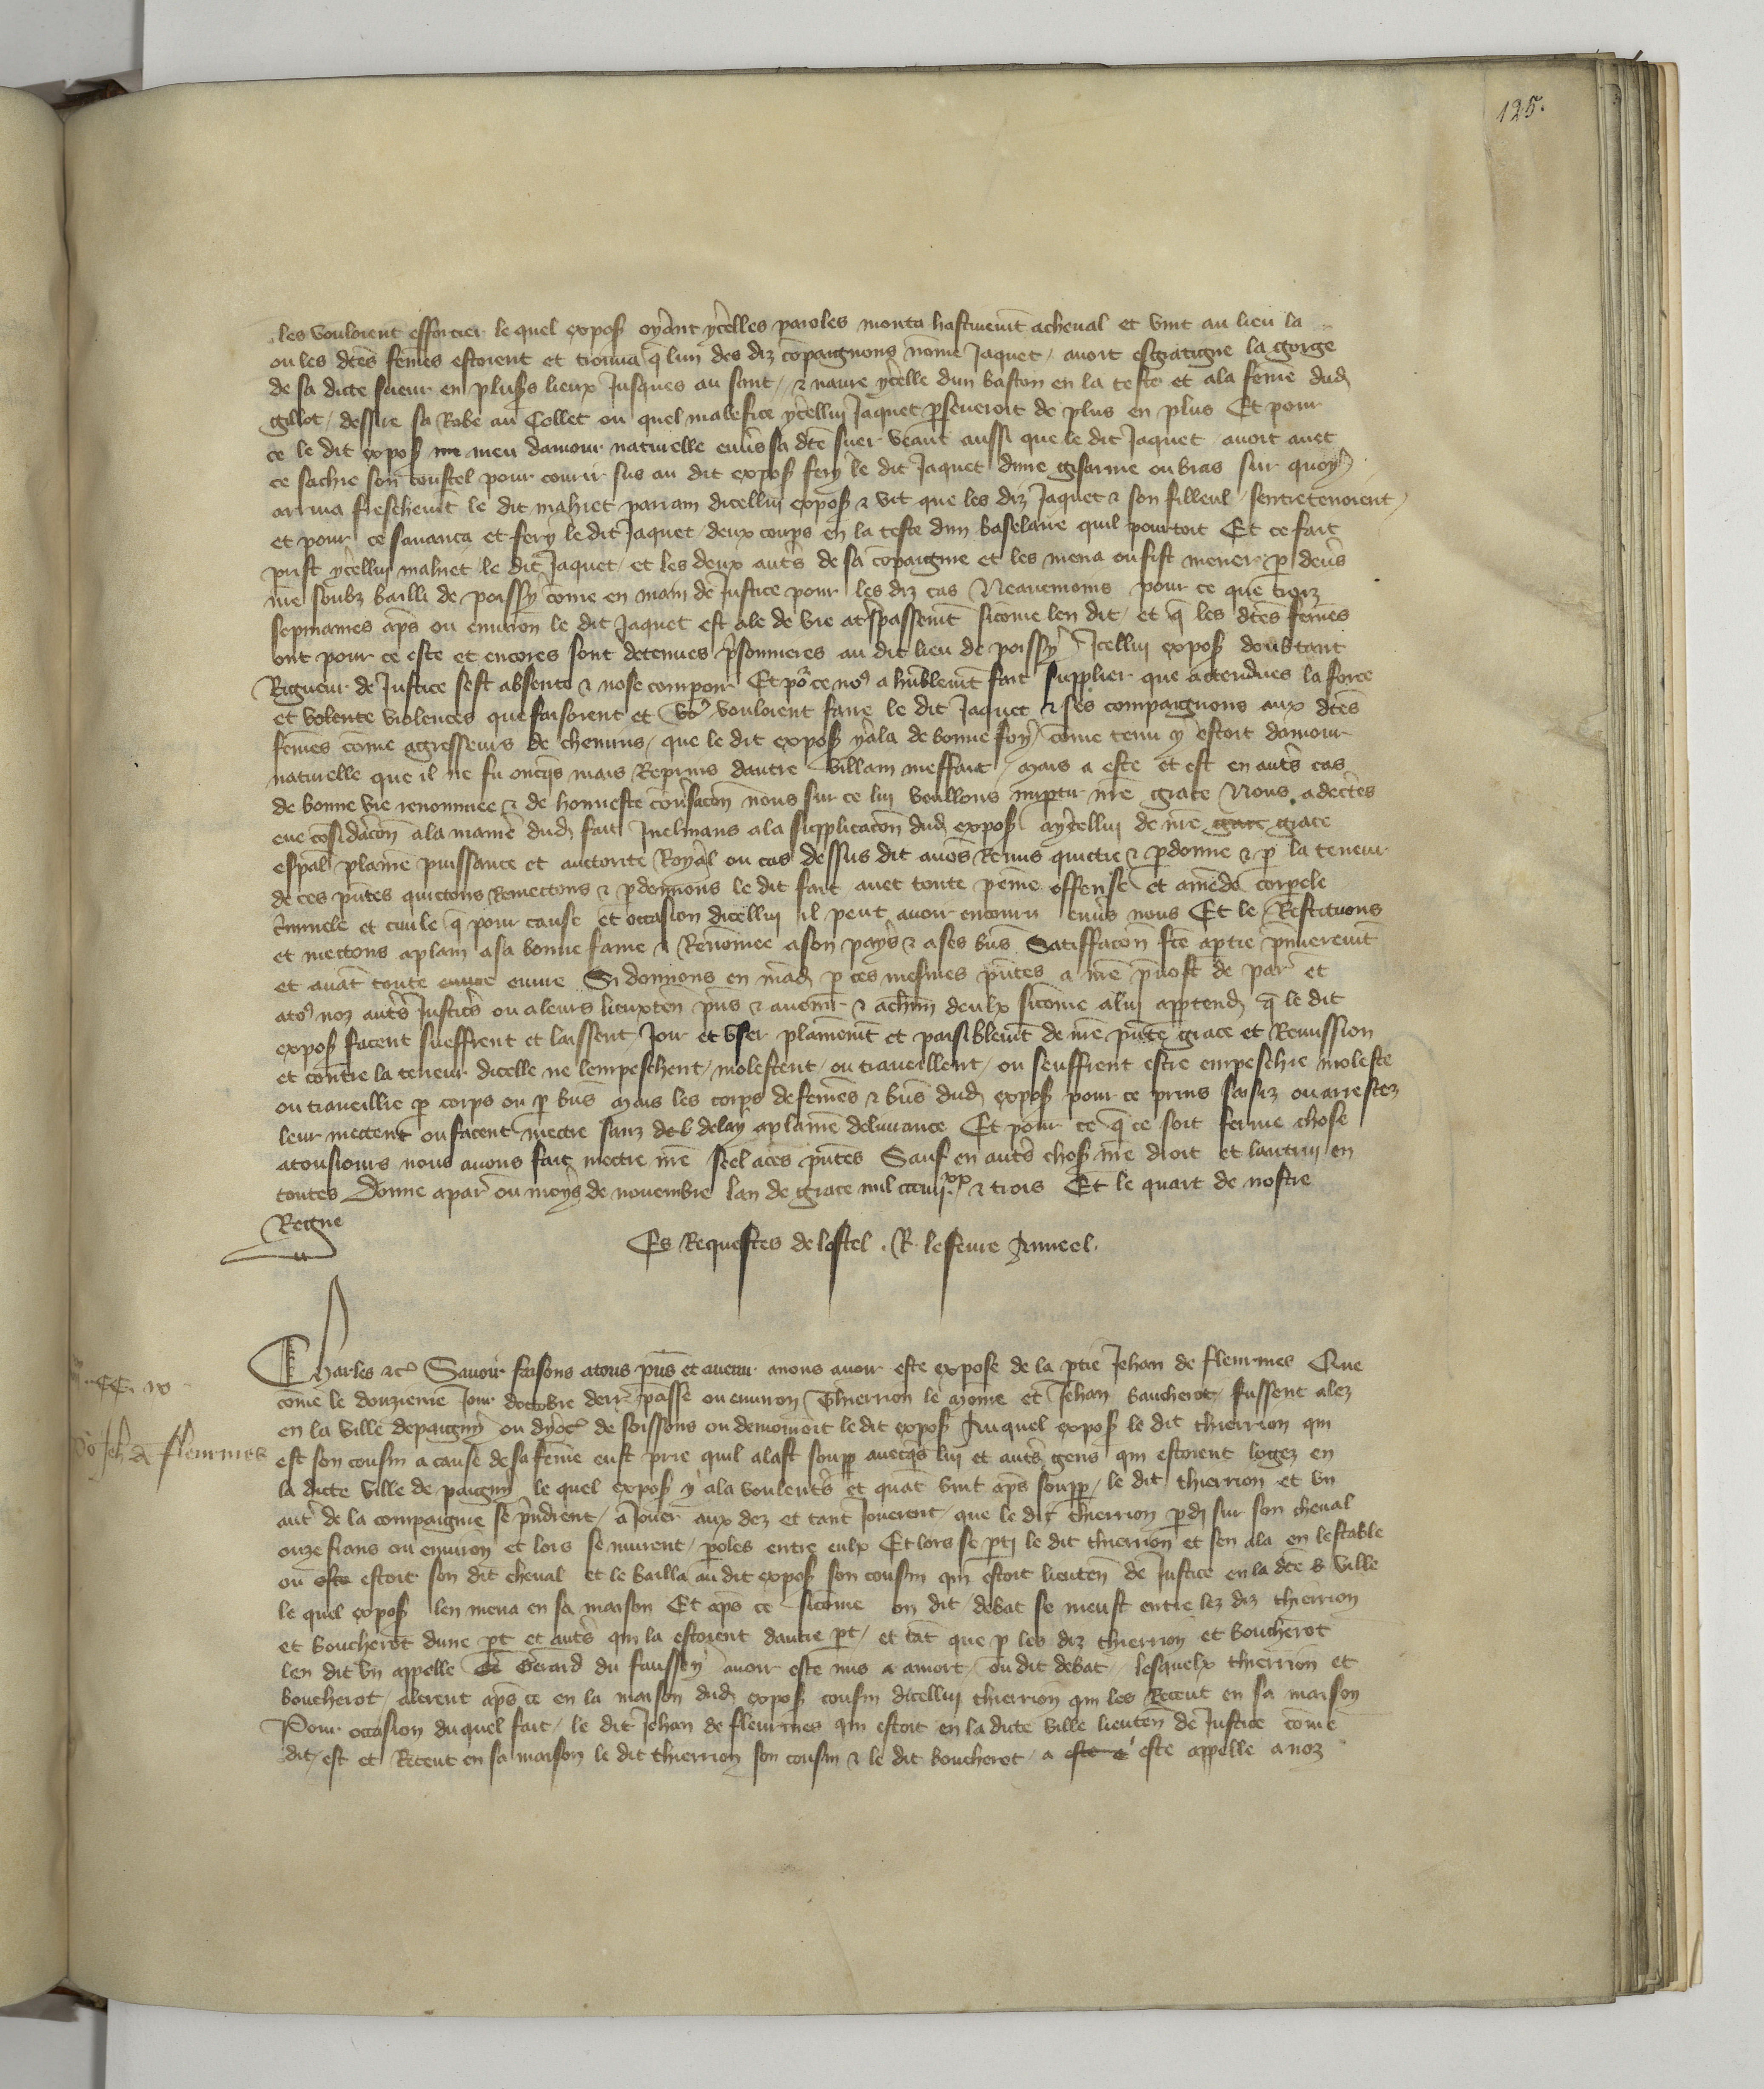 125.
les vouloient efforcier le quel expos oyant ycelles paroles monta hastivemt a cheval et vint au lieu la
ou les dtes femes estoient et trouva q lun des diz compaignons nome Jaquet / avoit esgratigne la gorge
de sa dicte sueur en plus's lieux Jusques au sanc / & navre ycelle dun baston en la teste et a la feme dud
Gillot / dessire sa Robe au Collet ou quel malefice ycellui Jaquet pseveroit de plus en plus Et pour
ce le dit expos meu damour naturelle envs sa dte suer veant aussi que le dit Jaquet avoit avec
ce sachie son coustel pour courir sus au dit expos fery le dit Jaquet dune gisarme ou bras sur quoy
arriva freschemt le dit mahiet parram dicellui expos & vit que les diz Jaquet & son filleul / sentretenoient /
et pour ce savanca et fery le dit Jaquet / deux coups en la teste dun baselaire quil pourtoit Et ce fait
prist ycellui mahiet le dit Jaquet / et les deux auts de sa copaignie et les mena ou fist mener p devs
nre soubz bailli de poissy come en main de Justice pour les diz cas Neantmoins pour ce que troiz
sepmaines aps ou environ le dit Jaquet est ale de vie a trspassemt sicome len dit / et q les dtes femes
ont pour ce este et encores sont detenues prsonnieres au dit lieu de poissy Icellui expos doubtant
Rigueur de Justice sest absente & nose comparoir Et po ce nos a humblemt fait supplier que actendues la force
et volente violences que faisoient et vouloient faire le dit Jaquet & ses compaignons aux dtes
femes come agresseurs de chemins / que le dit expos y ala de bonne foy / come tenu y estoit damour
naturelle que il ne fu oncqs mais Reprins dautre villain meffait / mais a este et est en auts cas
de bonne vie renommee & de honneste conversacon nous sur ce lui veullons impartir nre grace Nous adectes
eue cosidacon a la maniere dud fait Inclinans a la supplicacon dud expos a ycellui de nre grace grace
espal plaine puissance et auctorite Royal ou cas dessus dit avos Remis quictie & pdonne & p la teneur
de ces pntes quictons Remectons & pdonnons le dit fait avec toute peine offense et amede corpele
crimnele et civile q pour cause et occasion dicellui il peut avoir encouru envs nous Et le Restituons
et mectons a plain a sa bonne fame & Renomee a son pays & a ses bns Satiffacon fte a ptie pmieremt
et avat toute euvre euvre Si donnons en mad p ces mesmes pntes a nre pvost de par et
a tos noz auts Justics ou a leurs lieuxten pns & avenir & a chun deulx sicome a lui apptend q le dit
expos facent sueffrent et laissent Joir et user plainemt et paisiblemt de nre pnte grace et Remission
et contre la teneur dicelle ne lempeschent / molestent / ou traveillent / ou seuffrent estre empeschie moleste
ou traveillie p corps ou p bns mais les corps de femes & bns dud expos pour ce prins saisiz ou arrestez
leur mectent ou facent mectre sanz del delay a plaine delivrance Et pour ce q ce soit ferme chose
a tousiours nous avons fait mectre nre seel a ces pntes Sauf en auts chos nre droit et lautrui en
toutes Donne a par ou moys de novembre lan de grace mil ccc iiii xx & trois Et le quart de nostre
Regne
Es Requestes de lostel . R. lefevre Anneel.
Charles &c Savoir faisons a tous pns et avenir a nous avoir este expose de la ptie Jehan de fleurines Que
come le douzieme Jour doctobre derr passe ou environ Thierrion le moine et Jehan baucherot / fussent alez
en la ville depaigny ou dyoc de soissons ou demouroit le dit expos Auquel expos le dit thierrion qui
est son cousin a cause de sa feme eust prie quil alast soupp avecqs lui et auts gens qui estoient logez en
la dicte ville de paigny le quel expos y ala voulents et quat vint aps soupp / le dit thierrion et un
autr de la compaignie se prndrent / a Jouer aux dez et tant Jouerent / que le dit thierrion pdi sur son cheval
onze frans ou environ et lors se murent / poles entre eulx Et lors se pti le dit thierrion et sen ala en lestable
ou este estoit son dit cheval et le bailla au dit expos son cousin qui estoit lieuten de Justice en la dte ville
le quel expos len mena en sa maison Et aps ce sicome on dit / debat se meust entre lez diz thierrion
et boucherot dune pt et auts qui la estoient dautre pt / et tat que p les diz thierrion et boucherot
len dit un appelle Ge Gerard du faussey avoir este mis a mort / ou dit debat / lesquelx thierrion et
boucherot / alerent aps ce en la maison dud expos cousin dicellui thierrion qui les Receut en sa maison
Pour occasion duquel fait / le dit Jehan de fleurines qui estoit en la dicte ville lieuten de Justice come
dit / est et Receut en sa maison le dit thierrion son cousin & le dit boucherot / a este e este appelle a noz
Jeh de fleurines